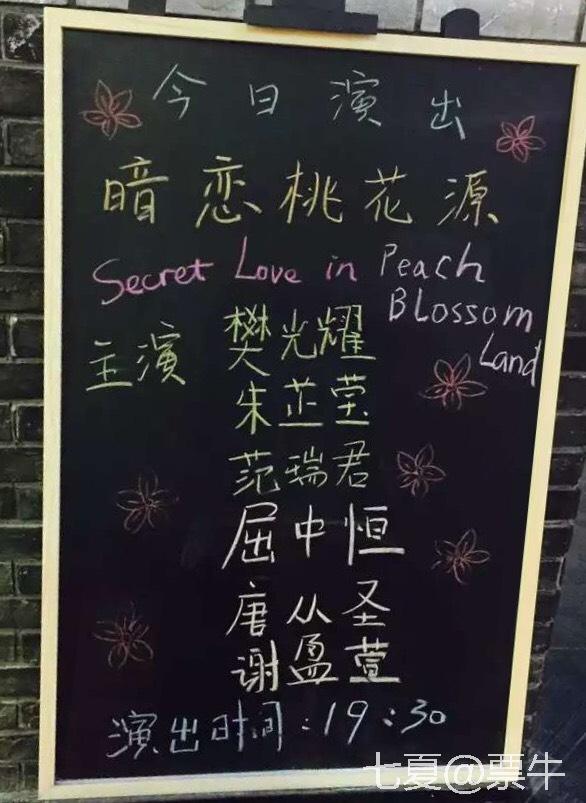 今日演出
暗恋桃花源
Secret Love in Peach
Blossom
Land
主演 樊光耀
朱芷莹
范瑞君
屈中恒
唐从圣
谢盈萱
演出时间:19:30
七夏@票牛